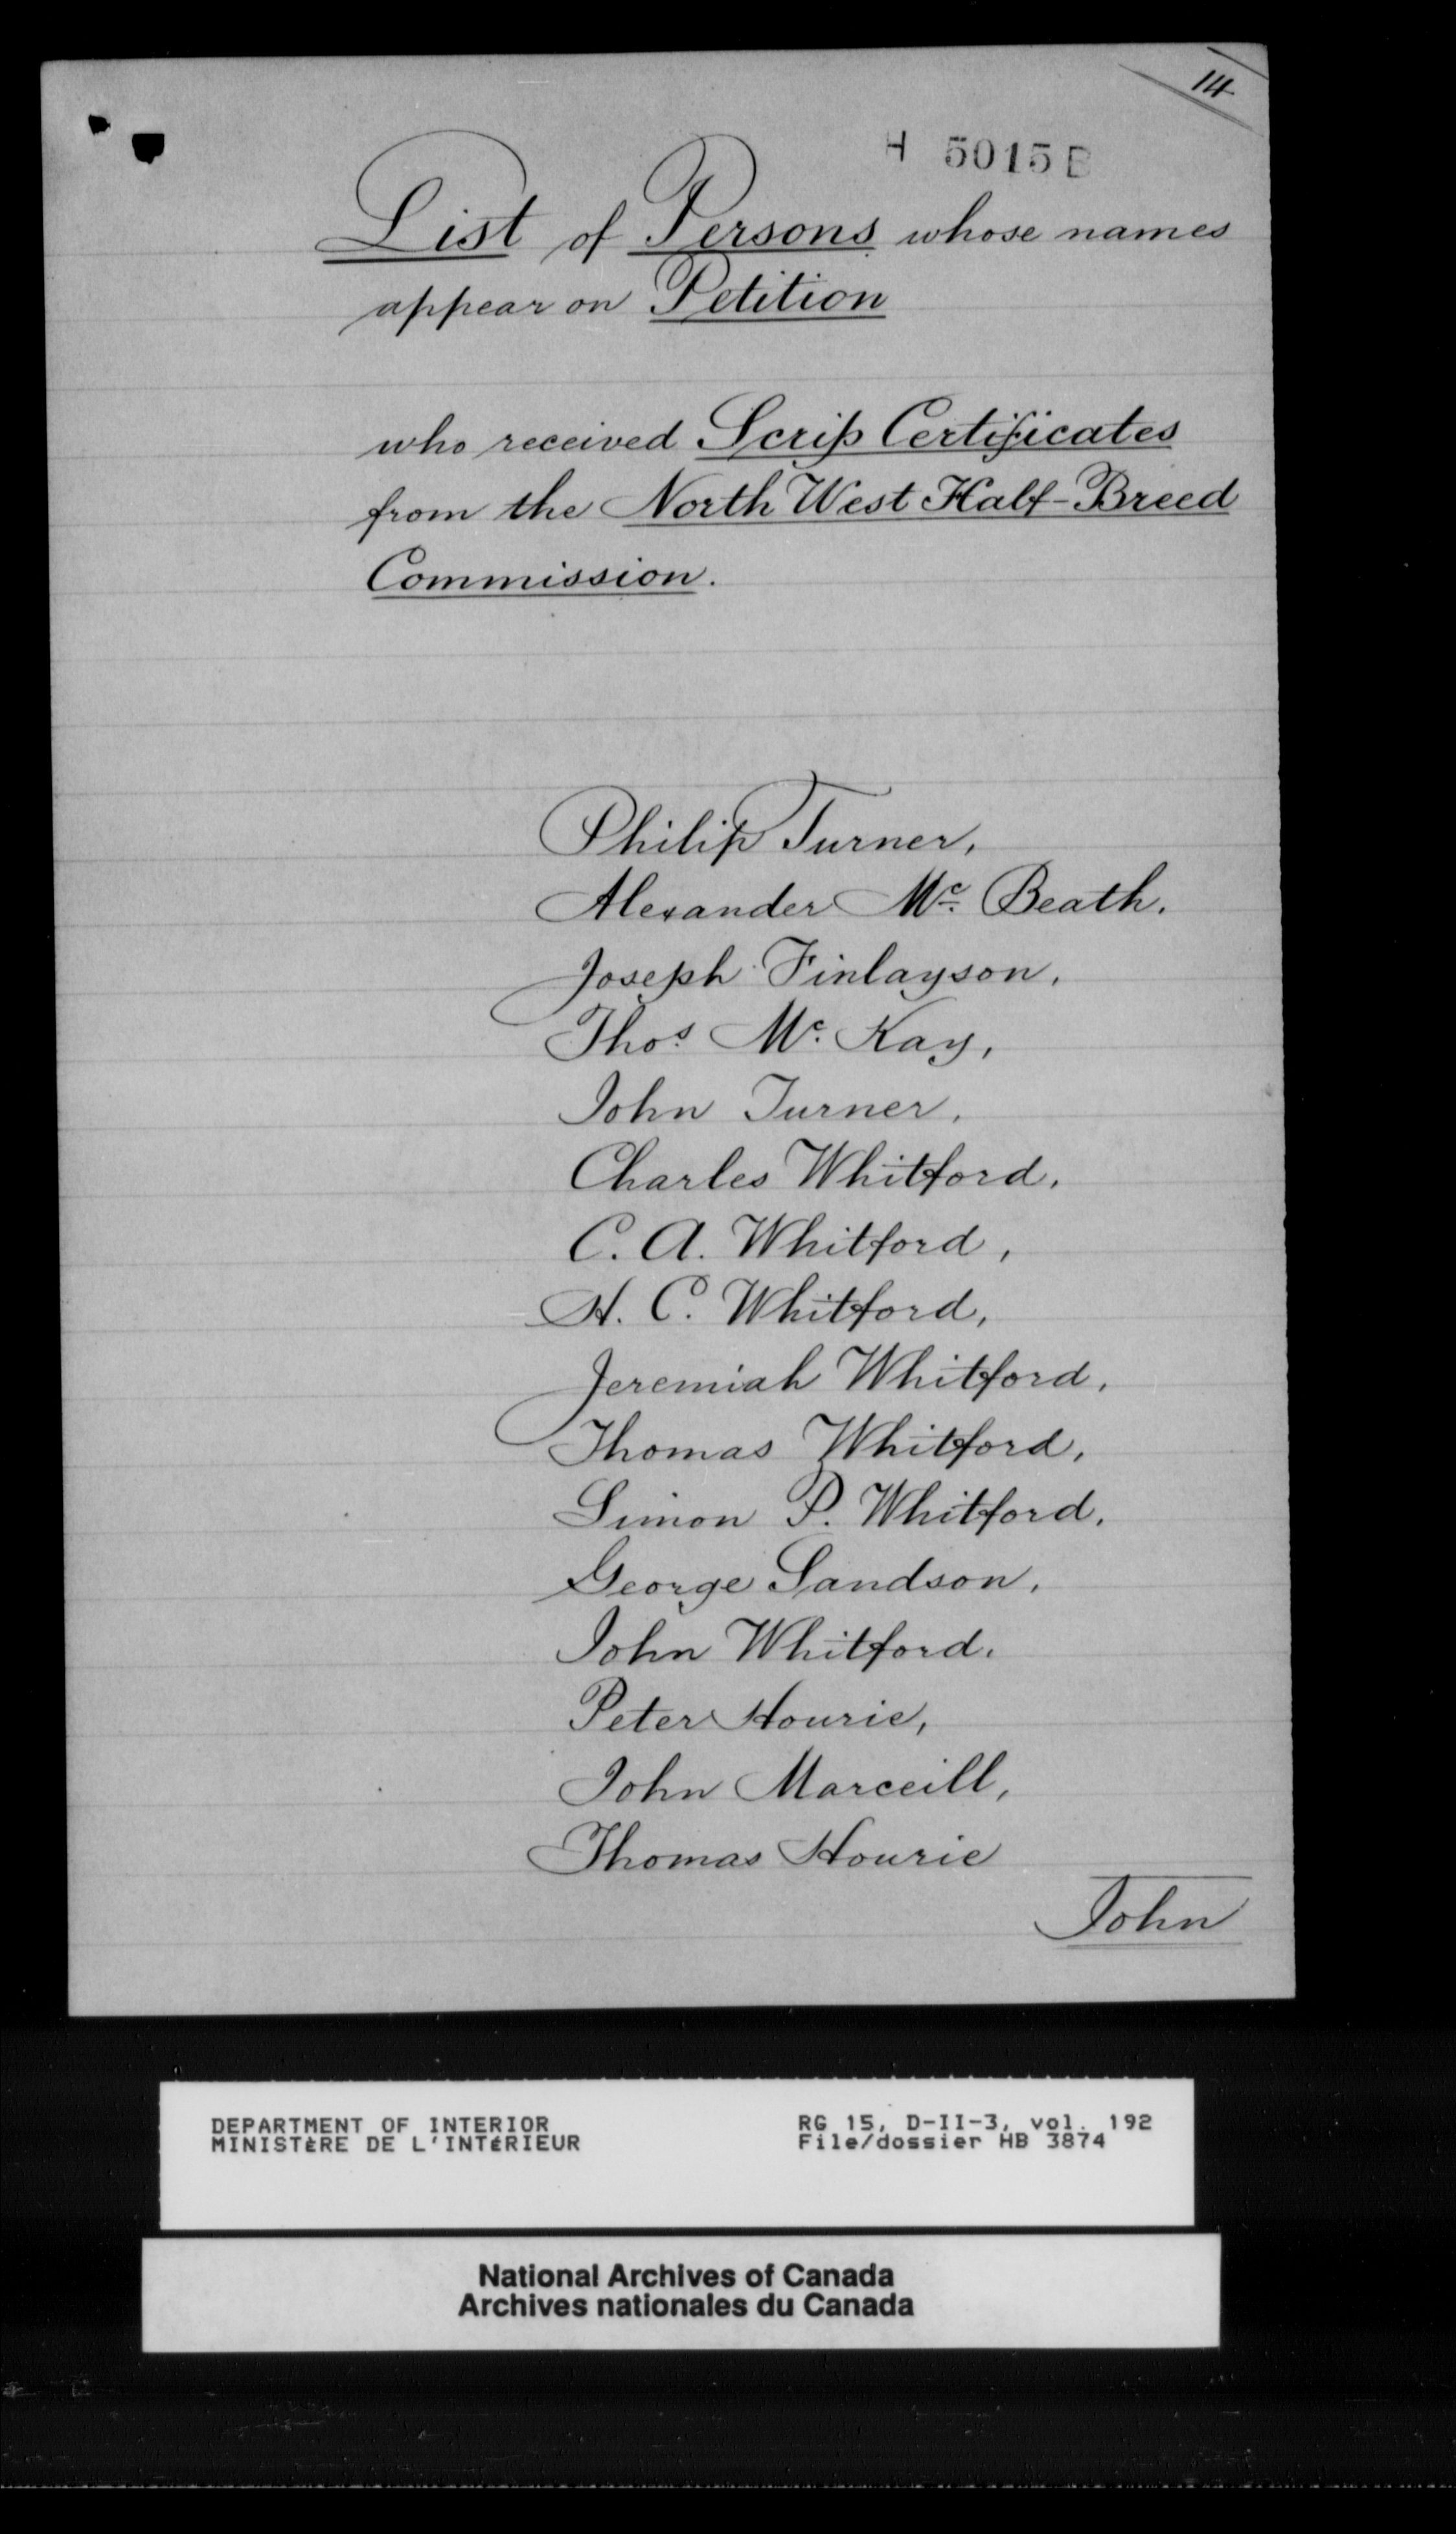 14
H 5015 B
List of Persons whose names
appear on Petition
who received Scrip Certificates
from the North West Half-Breed
Commission.
Philip Turner,
Alexander Mc. Beath.
Joseph Finlayson,
Thos. Mc. Kay,
John Turner,
Charles Whitford,
C. A. Whitford,
H. C. Whitford,
Jeremiah Whitford,
Thomas Whitford,
Simon P. Whitford,
George Sandson,
John Whitford.
Peter Hourie,
John Marceill,
Thomas Hourie
John
DEPARTMENT OF INTERIOR
MINISTÈRE DE L'INTÉRIEUR
RG 15, D-II-3, vol. 192
File/dossier HB 3874
National Archives of Canada
Archives nationales du Canada